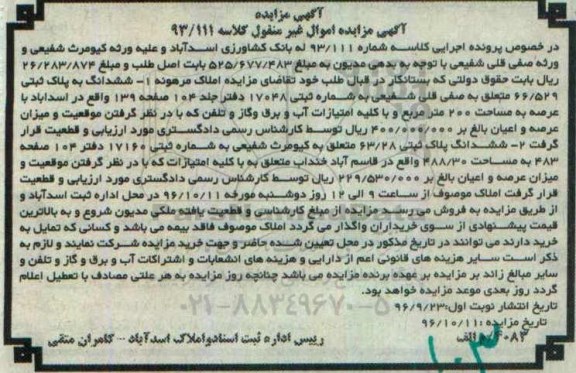 آگهی مزایده
آگهی مزایده اموال غیر منقول کلاسه ۹۳/۱۱۱
در خصوص پرونده اجرایی کلاسه شماره ۹۳/۱۱۱ له بانک کشاورزی اسدآباد و علیه ورثه کیومرث شفیعی و
ورثه صفی قلی شفیعی با توجه به بدهی مدیون به مبلغ ۵۲۵/۶۷۷/۴۸۳ بابت اصل طلب و مبلغ ۲۶/۲۸۳/۸۷۴
ریال بابت حقوق دولتی که بستانکار در قبال طلب خود تقاضای مزایده املاک مرهونه ۱- ششدانگ به پلاک ثبتی
۶۶/۵۲۹ متعلق به صفی قلی شفیعی به شماره ثبتی ۱۷۰۴۸ دفتر جلد ۱۰۴ صفحه ۱۳۹ واقع در اسداباد با
عرصه به مساحت ۲۰۰ متر مربع و با کلیه امتیازات آب و برق وگاز و تلفن که با در نظر گرفتن موقعیت و میزان
عرصه و اعیان بالغ بر ۴۰۰/۰۰۰/۰۰۰ ریال توسط کارشناس رسمی دادگستری مورد ارزیابی و قطعیت قرار
گرفت ۲- ششدانگ پلاک ثبتی ۶۳/۲۸ متعلق به کیومرث شفیعی به شماره ثبتی ۱۷۱۶۰ دفتر ۱۰۴ صفحه
۴۸۳ به مساحت ۴۸۸/۳۰ واقع در قاسم آباد خنداب متعلق به با کلیه امتیازات که با در نظر گرفتن موقعیت و
میزان عرصه و اعیان بالغ بر ۲۲۹/۵۳۰/۰۰۰ ریال توسط کارشناس رسمی دادگستری مورد ارزیابی و قطعیت
قرار گرفت املاک موصوف از ساعت ۹ الی ۱۲ روز دوشنبه مورخه ۹۶/۱۰/۱۱ در محل اداره ثبت اسدآباد و
از طریق مزایده به فروش می رسد مزایده از مبلغ کارشناسی و قطعیت یافته ملکی مدیون شروع و به بالاترین
قیمت پیشنهادی از سوی خریداران واگذار می گردد املاک موصوف فاقد بیمه می باشد و کسانی که تمایل به
خرید دارند می توانند در تاریخ مذکور در محل تعیین شده حاضر و جهت خرید مزایده شرکت نمایند و لازم به
ذکر است سایر هزینه های قانونی اعم از دارایی و هزینه های انشعابات و اشتراکات آب و برق و گاز و تلفن و
سایر مبالغ زائد بر مزایده بر عهده برنده مزایده می باشد چنانچه روز مزایده به هر علتی مصادف با تعطیل اعلام
گردد روز بعدی موعد مزایده خواهد بود.
۰۲۱-۸۸۳۴۹۶۷۰-۵
تاریخ انتشار نوبت اول:۹۶/۹/۲۳
تاریخ مزایده:۹۶/۱۰/۱۱
رییس اداره ثبت اسنادواملاک اسدآباد - کامران متقی